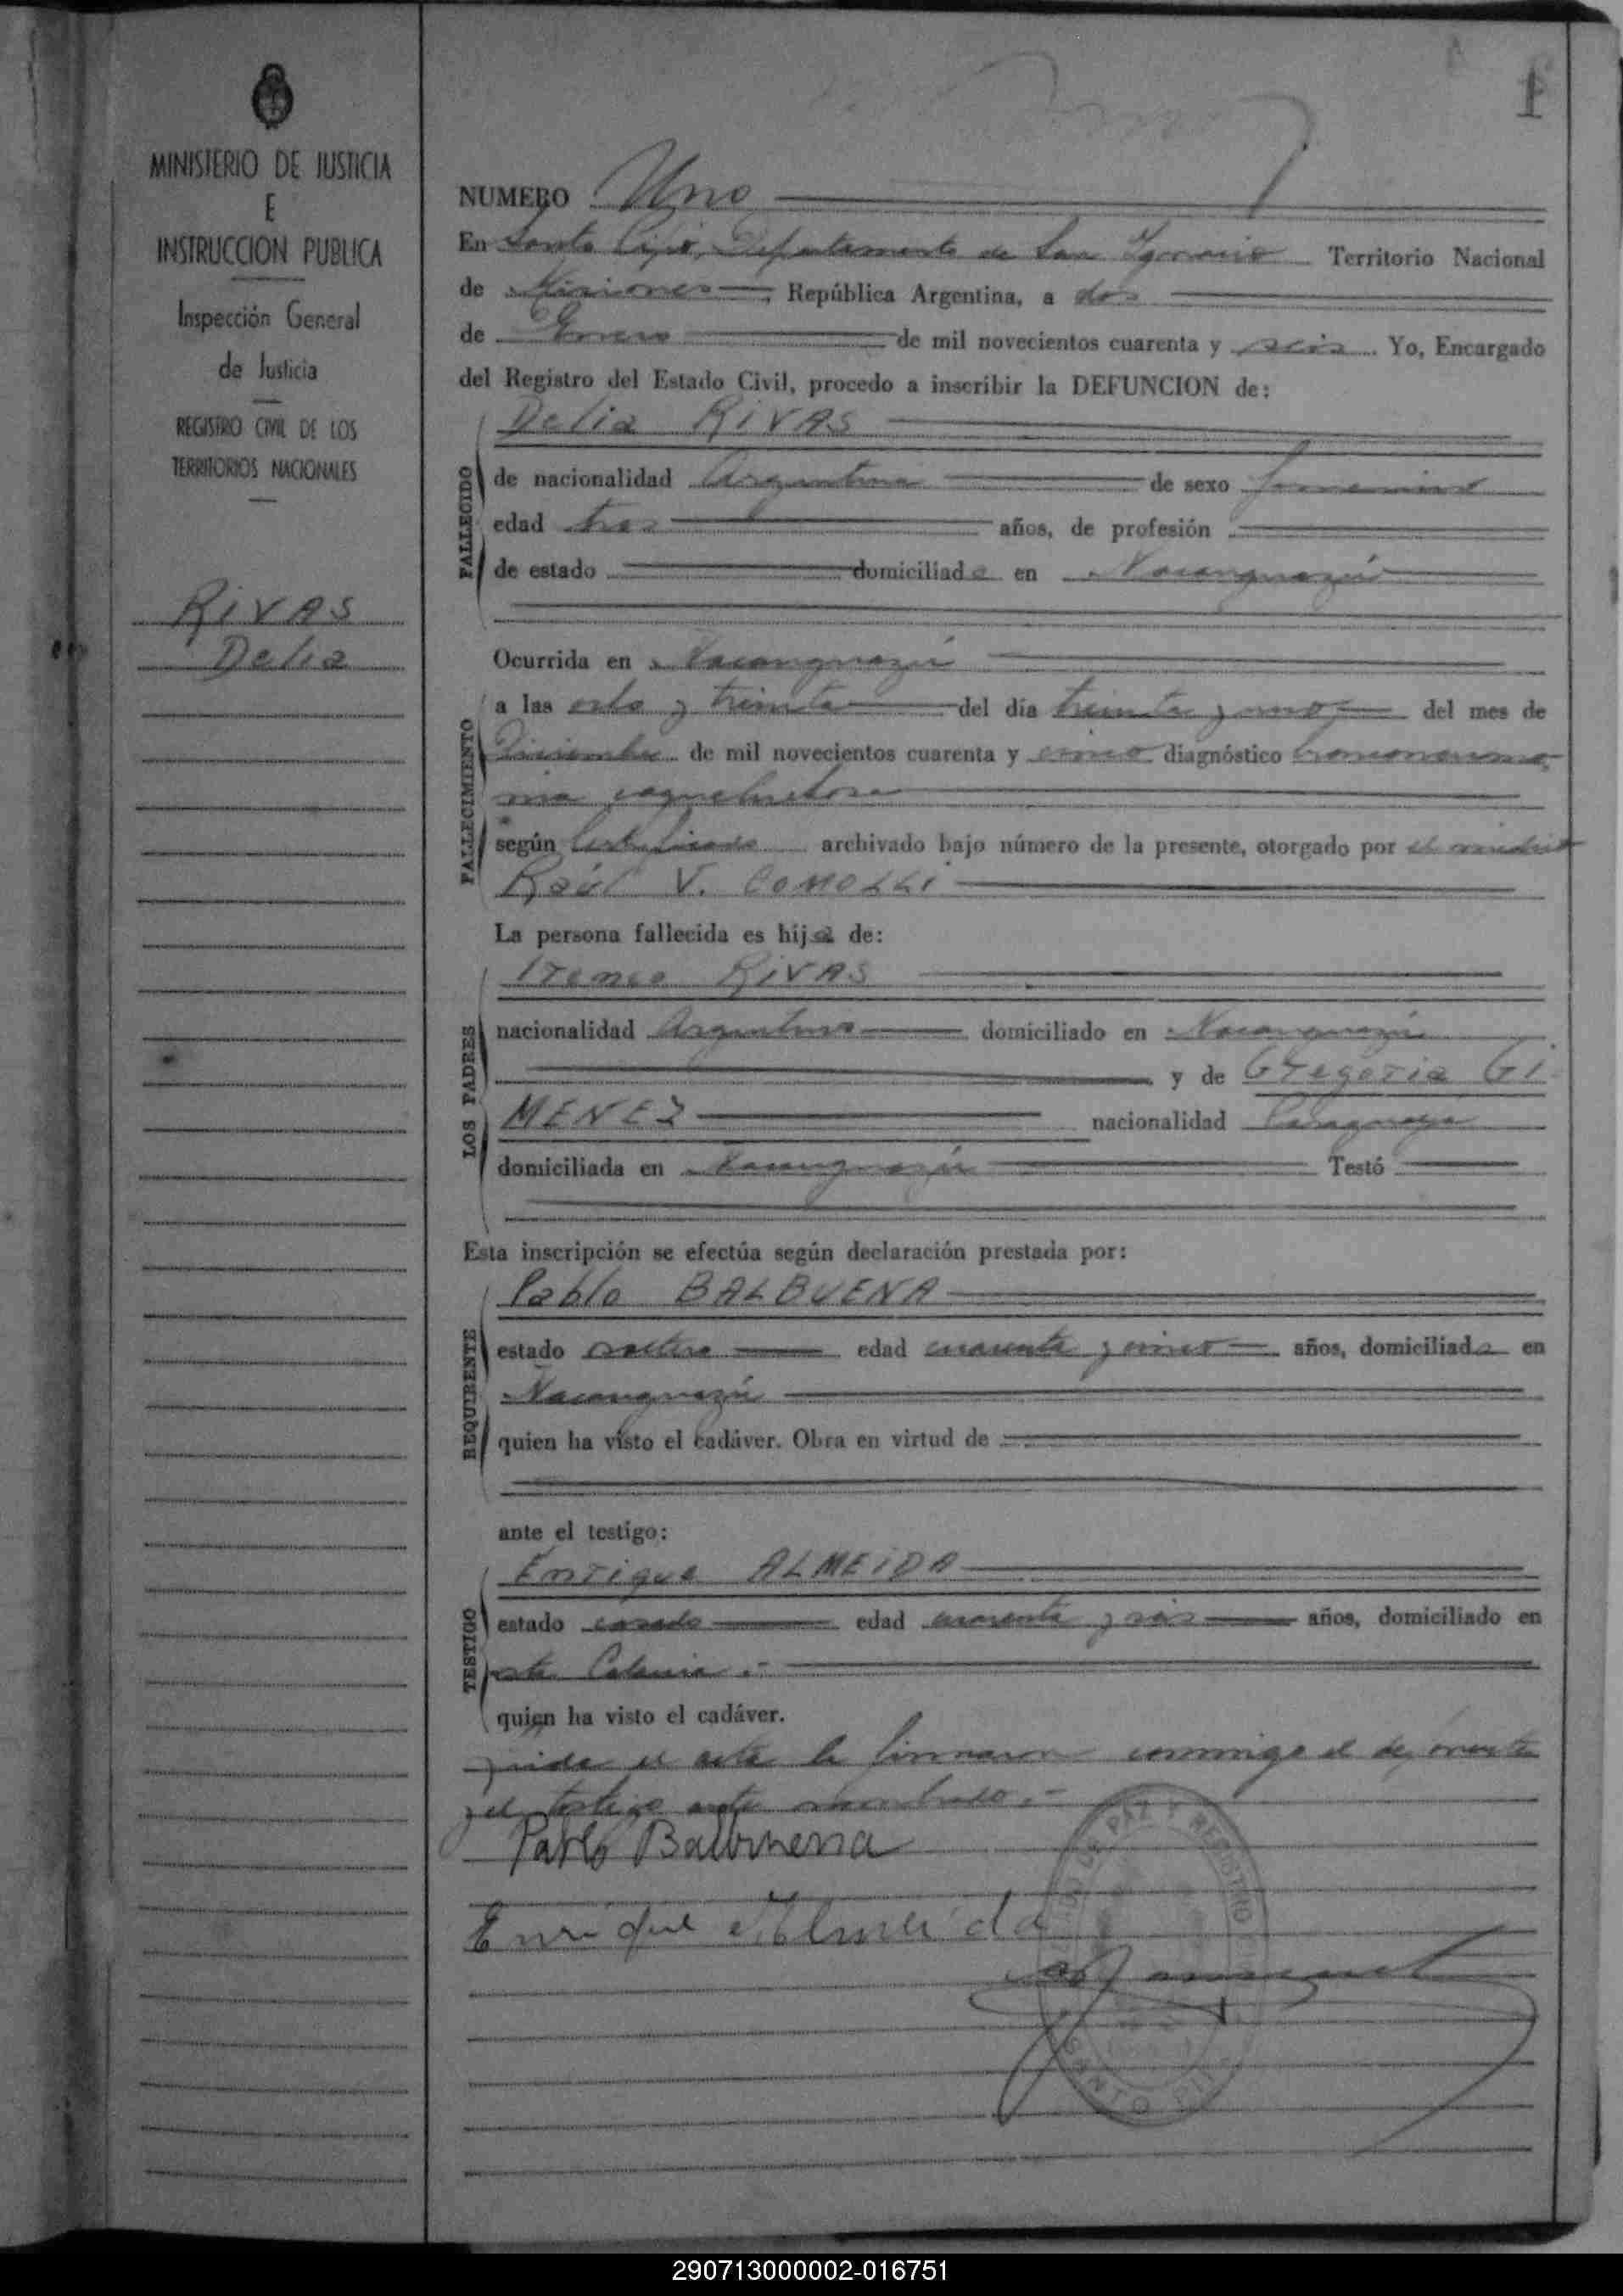 1
MINISTERIO DE JUSTICIA
E
INSTRUCCION PUBLICA
Inspección General
de Justicia
REGISTRO CIVIL DE LOS
TERRITORIOS NACIONALES
RIVAS
Delia
NUMERO Uno
En Santo Pipó, Departamento de San Ignacio Territorio Nacional
de Misiones, República Argentina, a dos
de Enero de mil novecientos cuarenta y seis. Yo, Encargado
del Registro del Estado Civil, procedo a inscribir la DEFUNCION de:
Delia RIVAS
FALLECIDO
de nacionalidad Argentina de sexo femenino
edad tres años, de profesión
de estado domiciliada en Ñacanguazú
Ocurrida en Ñacanguazú
FALLECIMIENTO
a las ocho y treinta del día treinta y uno del mes de
Diciembre de mil novecientos cuarenta y cinco diagnóstico
según Certificado archivado bajo número de la presente, otorgado por el médico
Raúl V. COMOLLI
La persona fallecida es hija de:
LOS PADRES
Ireneo RIVAS
nacionalidad Argentino domiciliado en Ñacanguazú
y de Gregoria GI
MENEZ nacionalidad Paraguaya
domiciliada en Ñacanguazú Testó
Esta inscripción se efectúa según declaración prestada por:
REQUIRENTE
Pablo BALBUENA
estado soltero edad cuarenta y cinco años, domiciliado en
Ñacanguazú
quien ha visto el cadáver. Obra en virtud de
ante el testigo:
TESTIGO
Enrique ALMEIDA
estado casado edad cuarenta y seis años, domiciliado en
esta Colonia.-
quien ha visto el cadáver.
Leída el acta la firmaron conmigo el deponente
y el testigo ante nombrado.-
Pablo Balbuena
Enrique Almeida
DE PAZ Y REGISTRO
SANTO PIPO
290713000002-016751